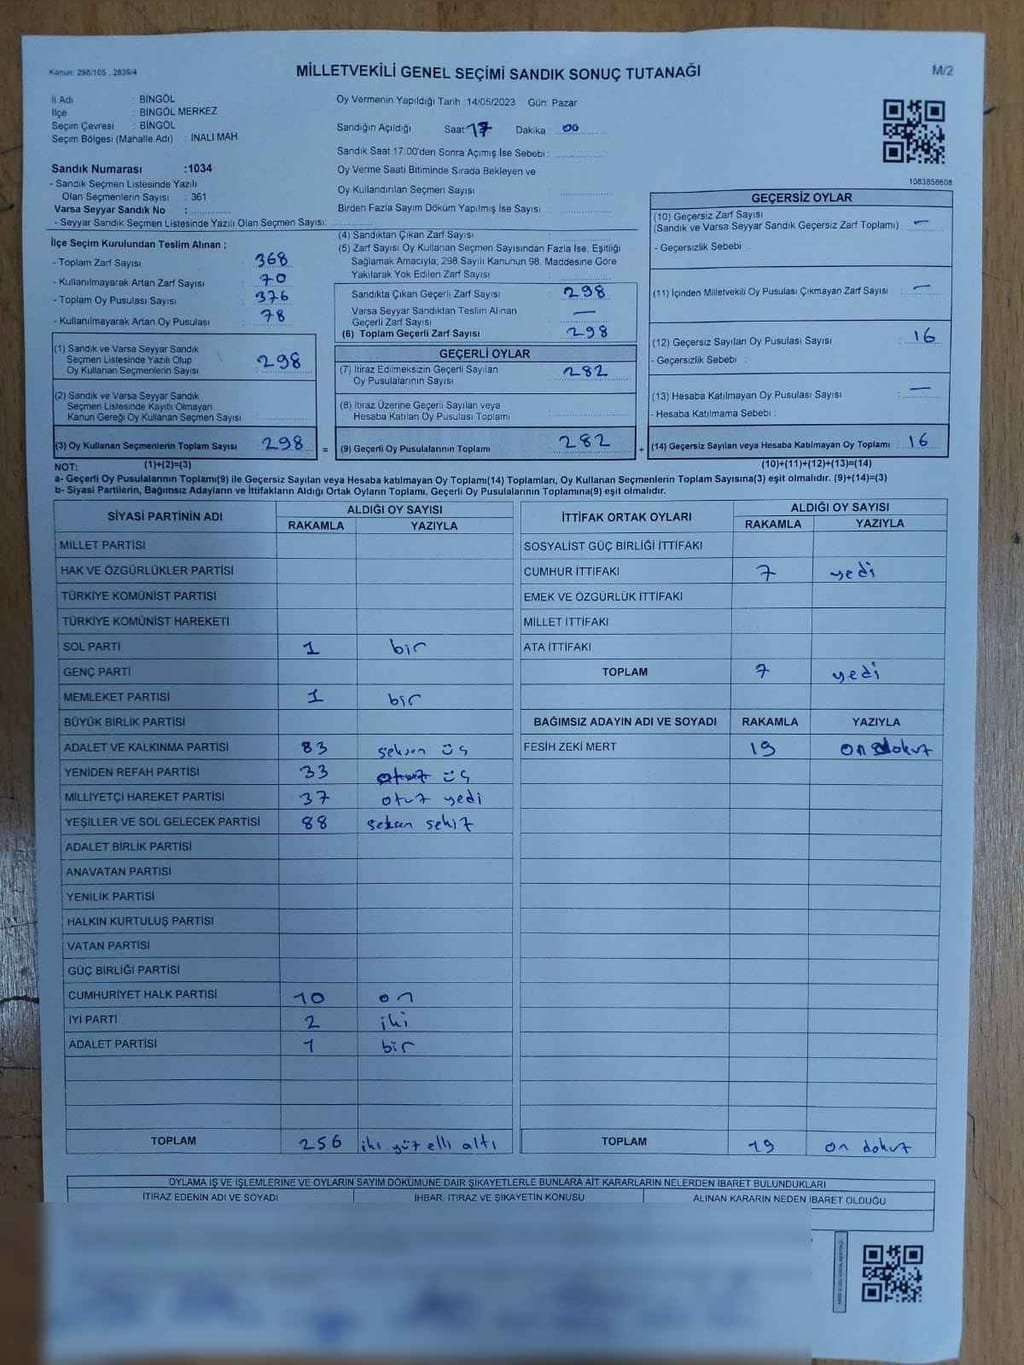 Kanun: 298/105 , 2839/4
MİLLETVEKİLİ GENEL SEÇİMİ SANDIK SONUÇ TUTANAĞI
M/2
İl Adı : BİNGÖL
İlçe : BİNGÖL MERKEZ
Seçim Çevresi : BİNGÖL
Seçim Bölgesi (Mahalle Adı) : İNALİ MAH
Sandık Numarası :1034
- Sandık Seçmen Listesinde Yazılı
Olan Seçmenlerin Sayısı : 361
Varsa Seyyar Sandık No :
- Seyyar Sandık Seçmen Listesinde Yazılı Olan Seçmen Sayısı:
Oy Vermenin Yapıldığı Tarih :14/05/2023 Gün: Pazar
Sandığın Açıldığı Saat: 17 Dakika 00
Sandık Saat 17:00'den Sonra Açımış İse Sebebi :
Oy Verme Saati Bitiminde Sırada Bekleyen ve
Oy Kullandırılan Seçmen Sayısı :
Birden Fazla Sayım Döküm Yapılmış İse Sayısı :
1083858608
İlçe Seçim Kurulundan Teslim Alınan ;
- Toplam Zarf Sayısı : 368
- Kullanılmayarak Artan Zarf Sayısı : 70
- Toplam Oy Pusulası Sayısı : 376
- Kullanılmayarak Artan Oy Pusulası : 78
(1) Sandık ve Varsa Seyyar Sandık
Seçmen Listesinde Yazılı Olup
Oy Kullanan Seçmenlerin Sayısı : 298
(2) Sandık ve Varsa Seyyar Sandık
Seçmen Listesinde Kayıtlı Olmayan
Kanun Gereği Oy Kullanan Seçmen Sayısı :
(3) Oy Kullanan Seçmenlerin Toplam Sayısı : 298 =
(4) Sandıktan Çıkan Zarf Sayısı :
(5) Zarf Sayısı Oy Kullanan Seçmen Sayısından Fazla İse, Eşitliği
Sağlamak Amacıyla; 298 Sayılı Kanunun 98. Maddesine Göre
Yakılarak Yok Edilen Zarf Sayısı :
Sandıkta Çıkan Geçerli Zarf Sayısı : 298
Varsa Seyyar Sandıktan Teslim Alınan
Geçerli Zarf Sayısı : —
(6) Toplam Geçerli Zarf Sayısı : 298
GEÇERLİ OYLAR
(7) İtiraz Edilmeksizin Geçerli Sayılan
Oy Pusulalarının Sayısı : 282
(8) İtiraz Üzerine Geçerli Sayılan veya
Hesaba Katılan Oy Pusulası Toplamı :
(9) Geçerli Oy Pusulalarının Toplamı : 282 +
GEÇERSİZ OYLAR
(10) Geçersiz Zarf Sayısı
(Sandık ve Varsa Seyyar Sandık Geçersiz Zarf Toplamı) : —
- Geçersizlik Sebebi :
(11) İçinden Milletvekili Oy Pusulası Çıkmayan Zarf Sayısı : —
(12) Geçersiz Sayılan Oy Pusulası Sayısı : 16
- Geçersizlik Sebebi :
(13) Hesaba Katılmayan Oy Pusulası Sayısı : —
- Hesaba Katılmama Sebebi :
(14) Geçersiz Sayılan veya Hesaba Katılmayan Oy Toplamı : 16
NOT: (1)+(2)=(3) (10)+(11)+(12)+(13)=(14)
a- Geçerli Oy Pusulalarının Toplamı(9) ile Geçersiz Sayılan veya Hesaba Katılmayan Oy Toplamı(14) Toplamları, Oy Kullanan Seçmenlerin Toplam Sayısına(3) eşit olmalıdır. (9)+(14)=(3)
b- Siyasi Partilerin, Bağımsız Adayların ve İttifakların Aldığı Ortak Oyların Toplamı, Geçerli Oy Pusulalarının Toplamına(9) eşit olmalıdır.
SİYASİ PARTİNİN ADI ALDIĞI OY SAYISI
RAKAMLA YAZIYLA
MİLLET PARTİSİ
HAK VE ÖZGÜRLÜKLER PARTİSİ
TÜRKİYE KOMÜNİST PARTİSİ
TÜRKİYE KOMÜNİST HAREKETİ
SOL PARTİ 1 bir
GENÇ PARTİ
MEMLEKET PARTİSİ 1 bir
BÜYÜK BİRLİK PARTİSİ
ADALET VE KALKINMA PARTİSİ 83 seksen üç
YENİDEN REFAH PARTİSİ 33 otuz üç
MİLLİYETÇİ HAREKET PARTİSİ 37 otuz yedi
YEŞİLLER VE SOL GELECEK PARTİSİ 88 seksen sekiz
ADALET BİRLİK PARTİSİ
ANAVATAN PARTİSİ
YENİLİK PARTİSİ
HALKIN KURTULUŞ PARTİSİ
VATAN PARTİSİ
GÜÇ BİRLİĞİ PARTİSİ
CUMHURİYET HALK PARTİSİ 10 on
İYİ PARTİ 2 iki
ADALET PARTİSİ 1 bir
TOPLAM 256 iki yüz elli altı
İTTİFAK ORTAK OYLARI ALDIĞI OY SAYISI
RAKAMLA YAZIYLA
SOSYALİST GÜÇ BİRLİĞİ İTTİFAKI
CUMHUR İTTİFAKI 7 yedi
EMEK VE ÖZGÜRLÜK İTTİFAKI
MİLLET İTTİFAKI
ATA İTTİFAKI
TOPLAM 7 yedi
BAĞIMSIZ ADAYIN ADI VE SOYADI RAKAMLA YAZIYLA
FESİH ZEKİ MERT 19 on dokuz
TOPLAM 19 on dokuz
OYLAMA İŞ VE İŞLEMLERİNE VE OYLARIN SAYIM DÖKÜMÜNE DAİR ŞİKAYETLERLE BUNLARA AİT KARARLARIN NELERDEN İBARET BULUNDUKLARI
İTİRAZ EDENİN ADI VE SOYADI İHBAR, İTİRAZ VE ŞİKAYETİN KONUSU ALINAN KARARIN NEDEN İBARET OLDUĞU